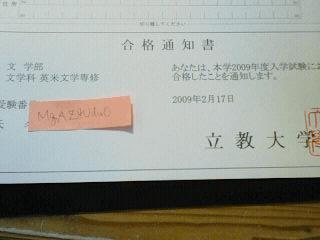 切り離してください
合格通知書
文 学部
文学科 英米文学専修
あなたは、本学2009年度入学試験に
合格したことを通知します。
受験番
2009年2月17日
立教大学